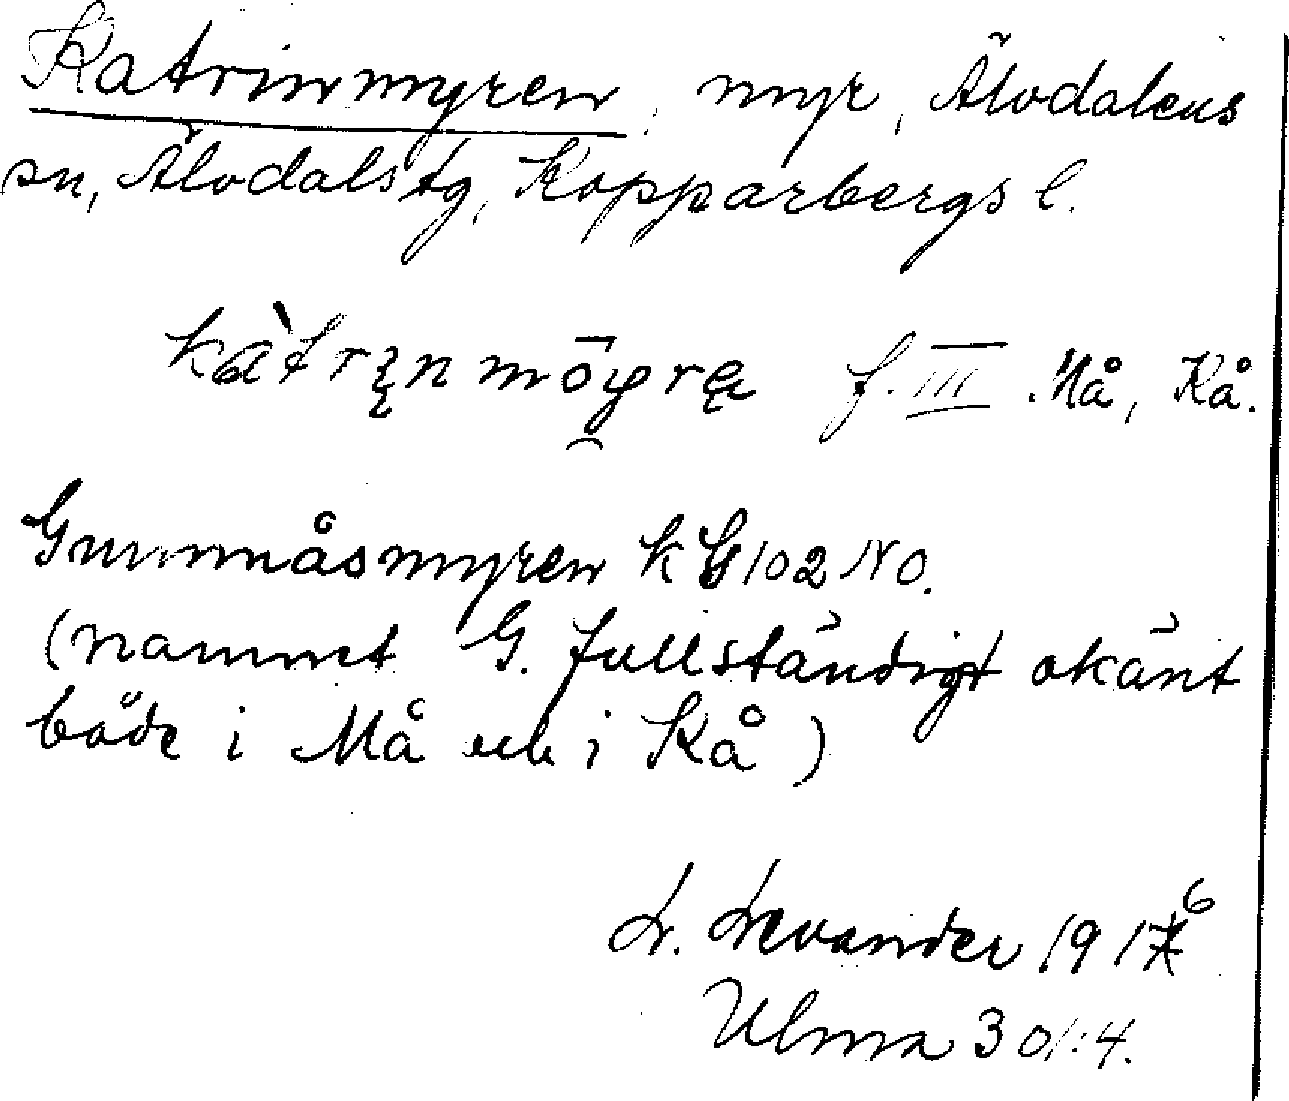 Katrinmyren, myr, Älvdalens
sn, Älvdals tg, Kopparbergs l.
f. III Må, Kå.
Gummåsmyren k G 102 NO.
(namnet G. fullständigt okänt
både i Må och i Kå)
L. Levander 1916
Ulma 301:4.